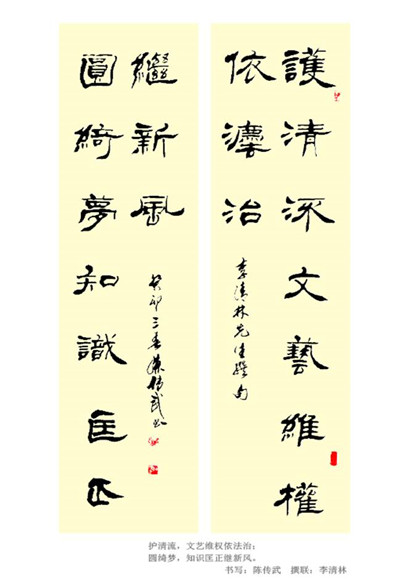 護清流文藝維權
依灋治
李清林先生撰句
圓綺夢知識匡正
繼新風
癸卯三春陳傳武书
护清流，文艺维权依法治；
圆绮梦，知识匡正继新风。
书写：陈传武　撰联：李清林